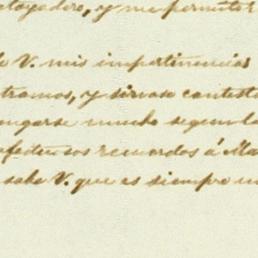 y me permiter
V. mis impertinencias
tramos, y sirvase contest
mucho segun la
afectuosos recuerdos á Ma
sabe V. que es siempre